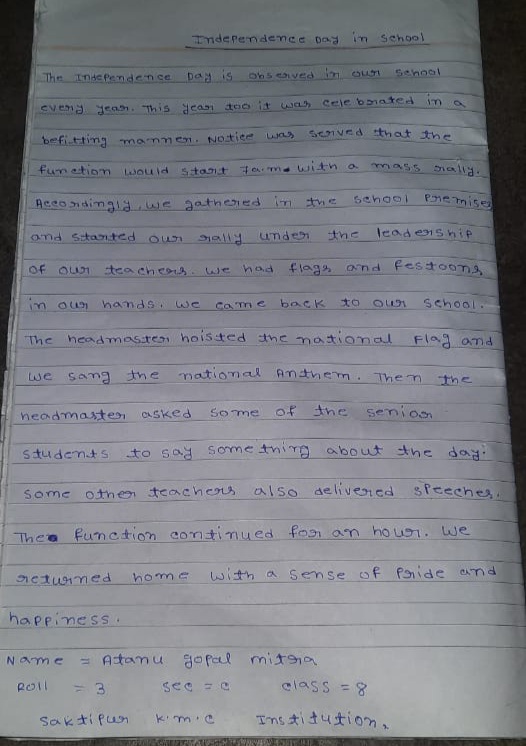 Independence Day in school
The Independence Day is observed in our school
every year. This year too it was celebrated in a
befitting manner. Notice was served that the
function would start 7a.m. with a mass rally.
Accordingly, we gathered in the school premises
and started our rally under the leadership
of our teachers. we had flags and festoons
in our hands. we came back to our school.
The headmaster hoisted the national flag and
we sang the national Anthem. Then the
headmaster asked some of the senior
students to say something about the day.
some other teachers also delivered speeches.
The function continued for an hour. we
returned home with a sense of pride and
happiness.
Name = Atanu gopal mitra
Roll = 3 sec = c class = 8
Saktipur k.m.c Institution.